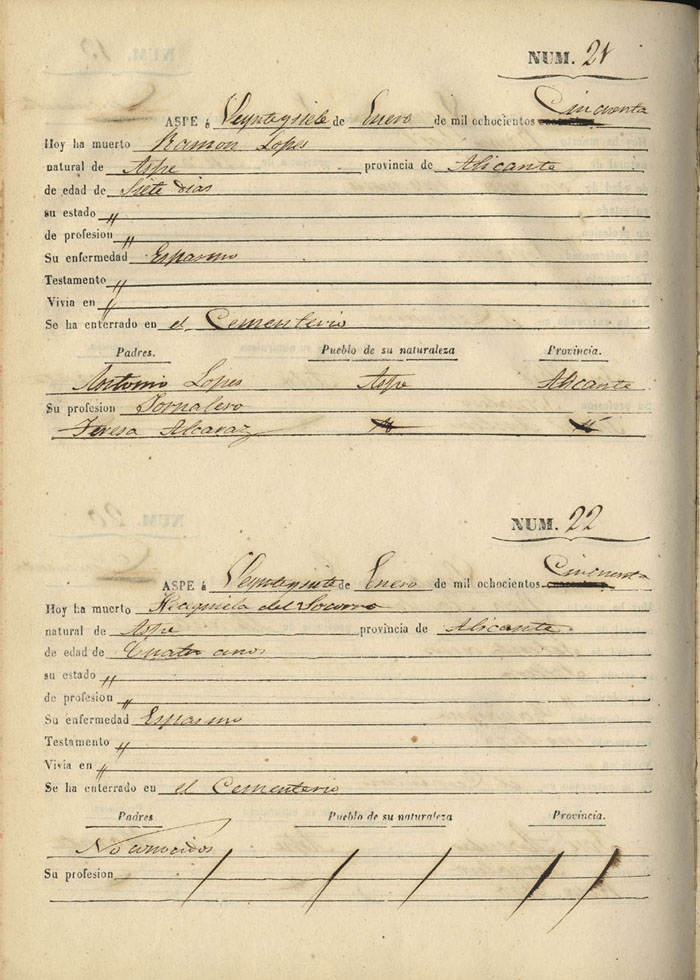 NUM. 21
ASPE á Veynteysiete de Enero de mil ochocientos Cincuenta
Hoy ha muerto Ramon Lopes
natural de Aspe provincia de Alicante
de edad de Siete dias
su estado "
de profesion "
Su enfermedad Espasmo
Testamento "
Vivia en "
Se ha enterrado en el Cementerio
Padres. Pueblo de su naturaleza Provincia.
Antonio Lopes Aspe Alicante
Su profesion Jornalero
Teresa Alcaraz
NUM. 22
ASPE á Veynteysiete de Enero de mil ochocientos Cincuenta
Hoy ha muerto del Socorro
natural de Aspe provincia de Alicante
de edad de Cuatro años
su estado "
de profesion "
Su enfermedad Espasmo
Testamento "
Vivia en "
Se ha enterrado en el Cementerio
Padres Pueblo de su naturaleza Provincia.
No conocidos
Su profesion